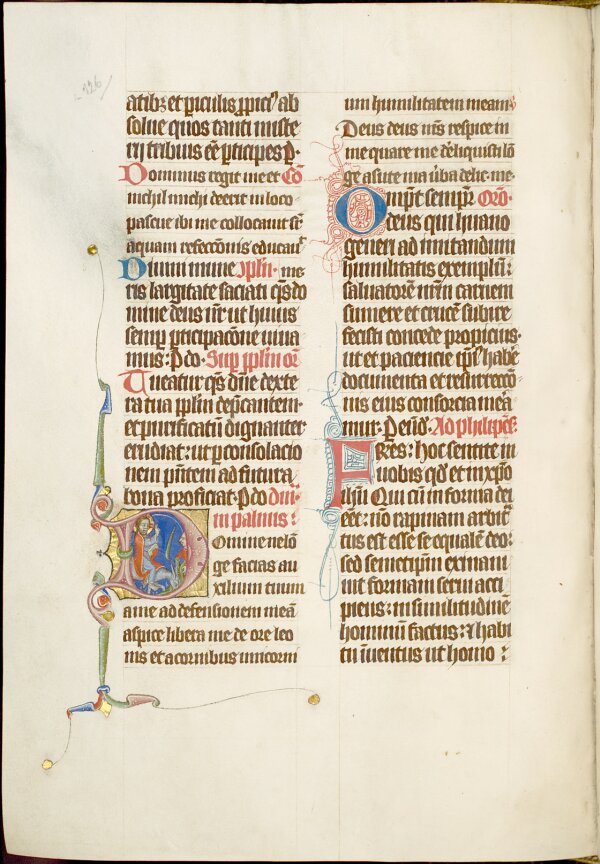 226
atib; et piculis ꝓpiciꝰ ab
solue quos tanti miste
rii tribuis ee pticipes P·
Dominus regit me et Co
nichil michi deerit in loco
pascue ibi me collocauit sr
aquam refeccōnis educaut
Diuini mune Pplm· me
ris largitate saciati qs do
mine deus nr ut huius
semp pticipacōne viua
mus: P do· Sup pplm or
Tueatur qs dne dexte
ra tua pplm depcantem·
et purificatū dignanter
erudiat: ut p consolacio
nem pntem ad futura
bona proficiat· P do dnī
in palmis:
Domine ne lon
ge facias au
xilium tuum
a me ad defensionem meā
aspice libera me de ore leo
nis et a cornibus unicorni
um humilitatem meam
Deus deus ms respice in
me quare me deliquisti lō
ge a salute mea
Ompt sempr Oro·
deus qui huano
generi ad imitandum
humilitatis exemplū:
saluatorē nrm carnem
sumere et crucē subire
fecisti concede propicius·
ut et paciencie ipiꝰ habe
documenta et resurrecco
nis eius consorcia meā
mur· P eund· Ad philipens
Fres: hoc sentite in
uobis qd et in xpo
ihu Qui cū in forma dei
eet: nō rapinam arbit
tus est esse se equalē deo:
sed semetipm exinani
uit formam serui acci
piens: in similitudinē
hominū factus: et habi
tu inuentus ut homo: